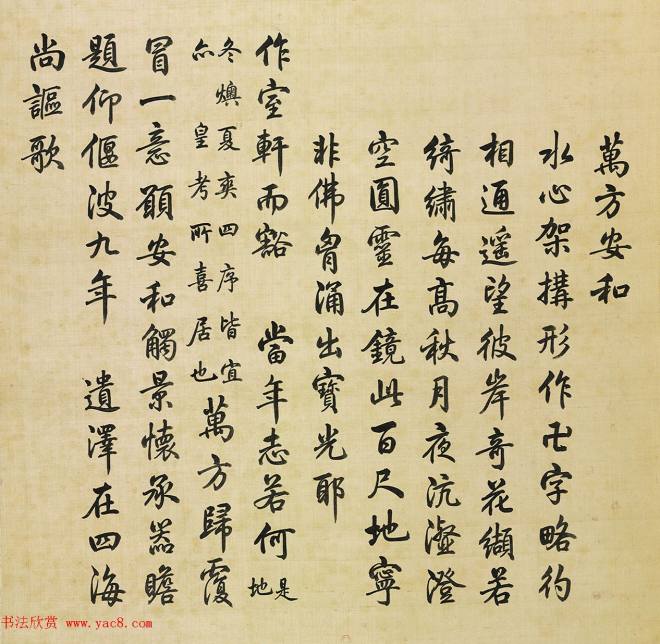 萬方安和
水心架搆形作卍字略彴
相通遙望彼岸奇花纈若
綺繡每高秋月夜沆瀣澄
空圓靈在鏡此百尺地寧
非佛胷涌出寶光耶
作室軒而豁 當年志若何是地
冬燠夏爽四序皆宜
亦 皇考所喜居也萬方歸覆
冒一意願安和觸景懷承器瞻
題仰偃波九年 遺澤在四海
尚謳歌
书法欣赏 www.yac8.com